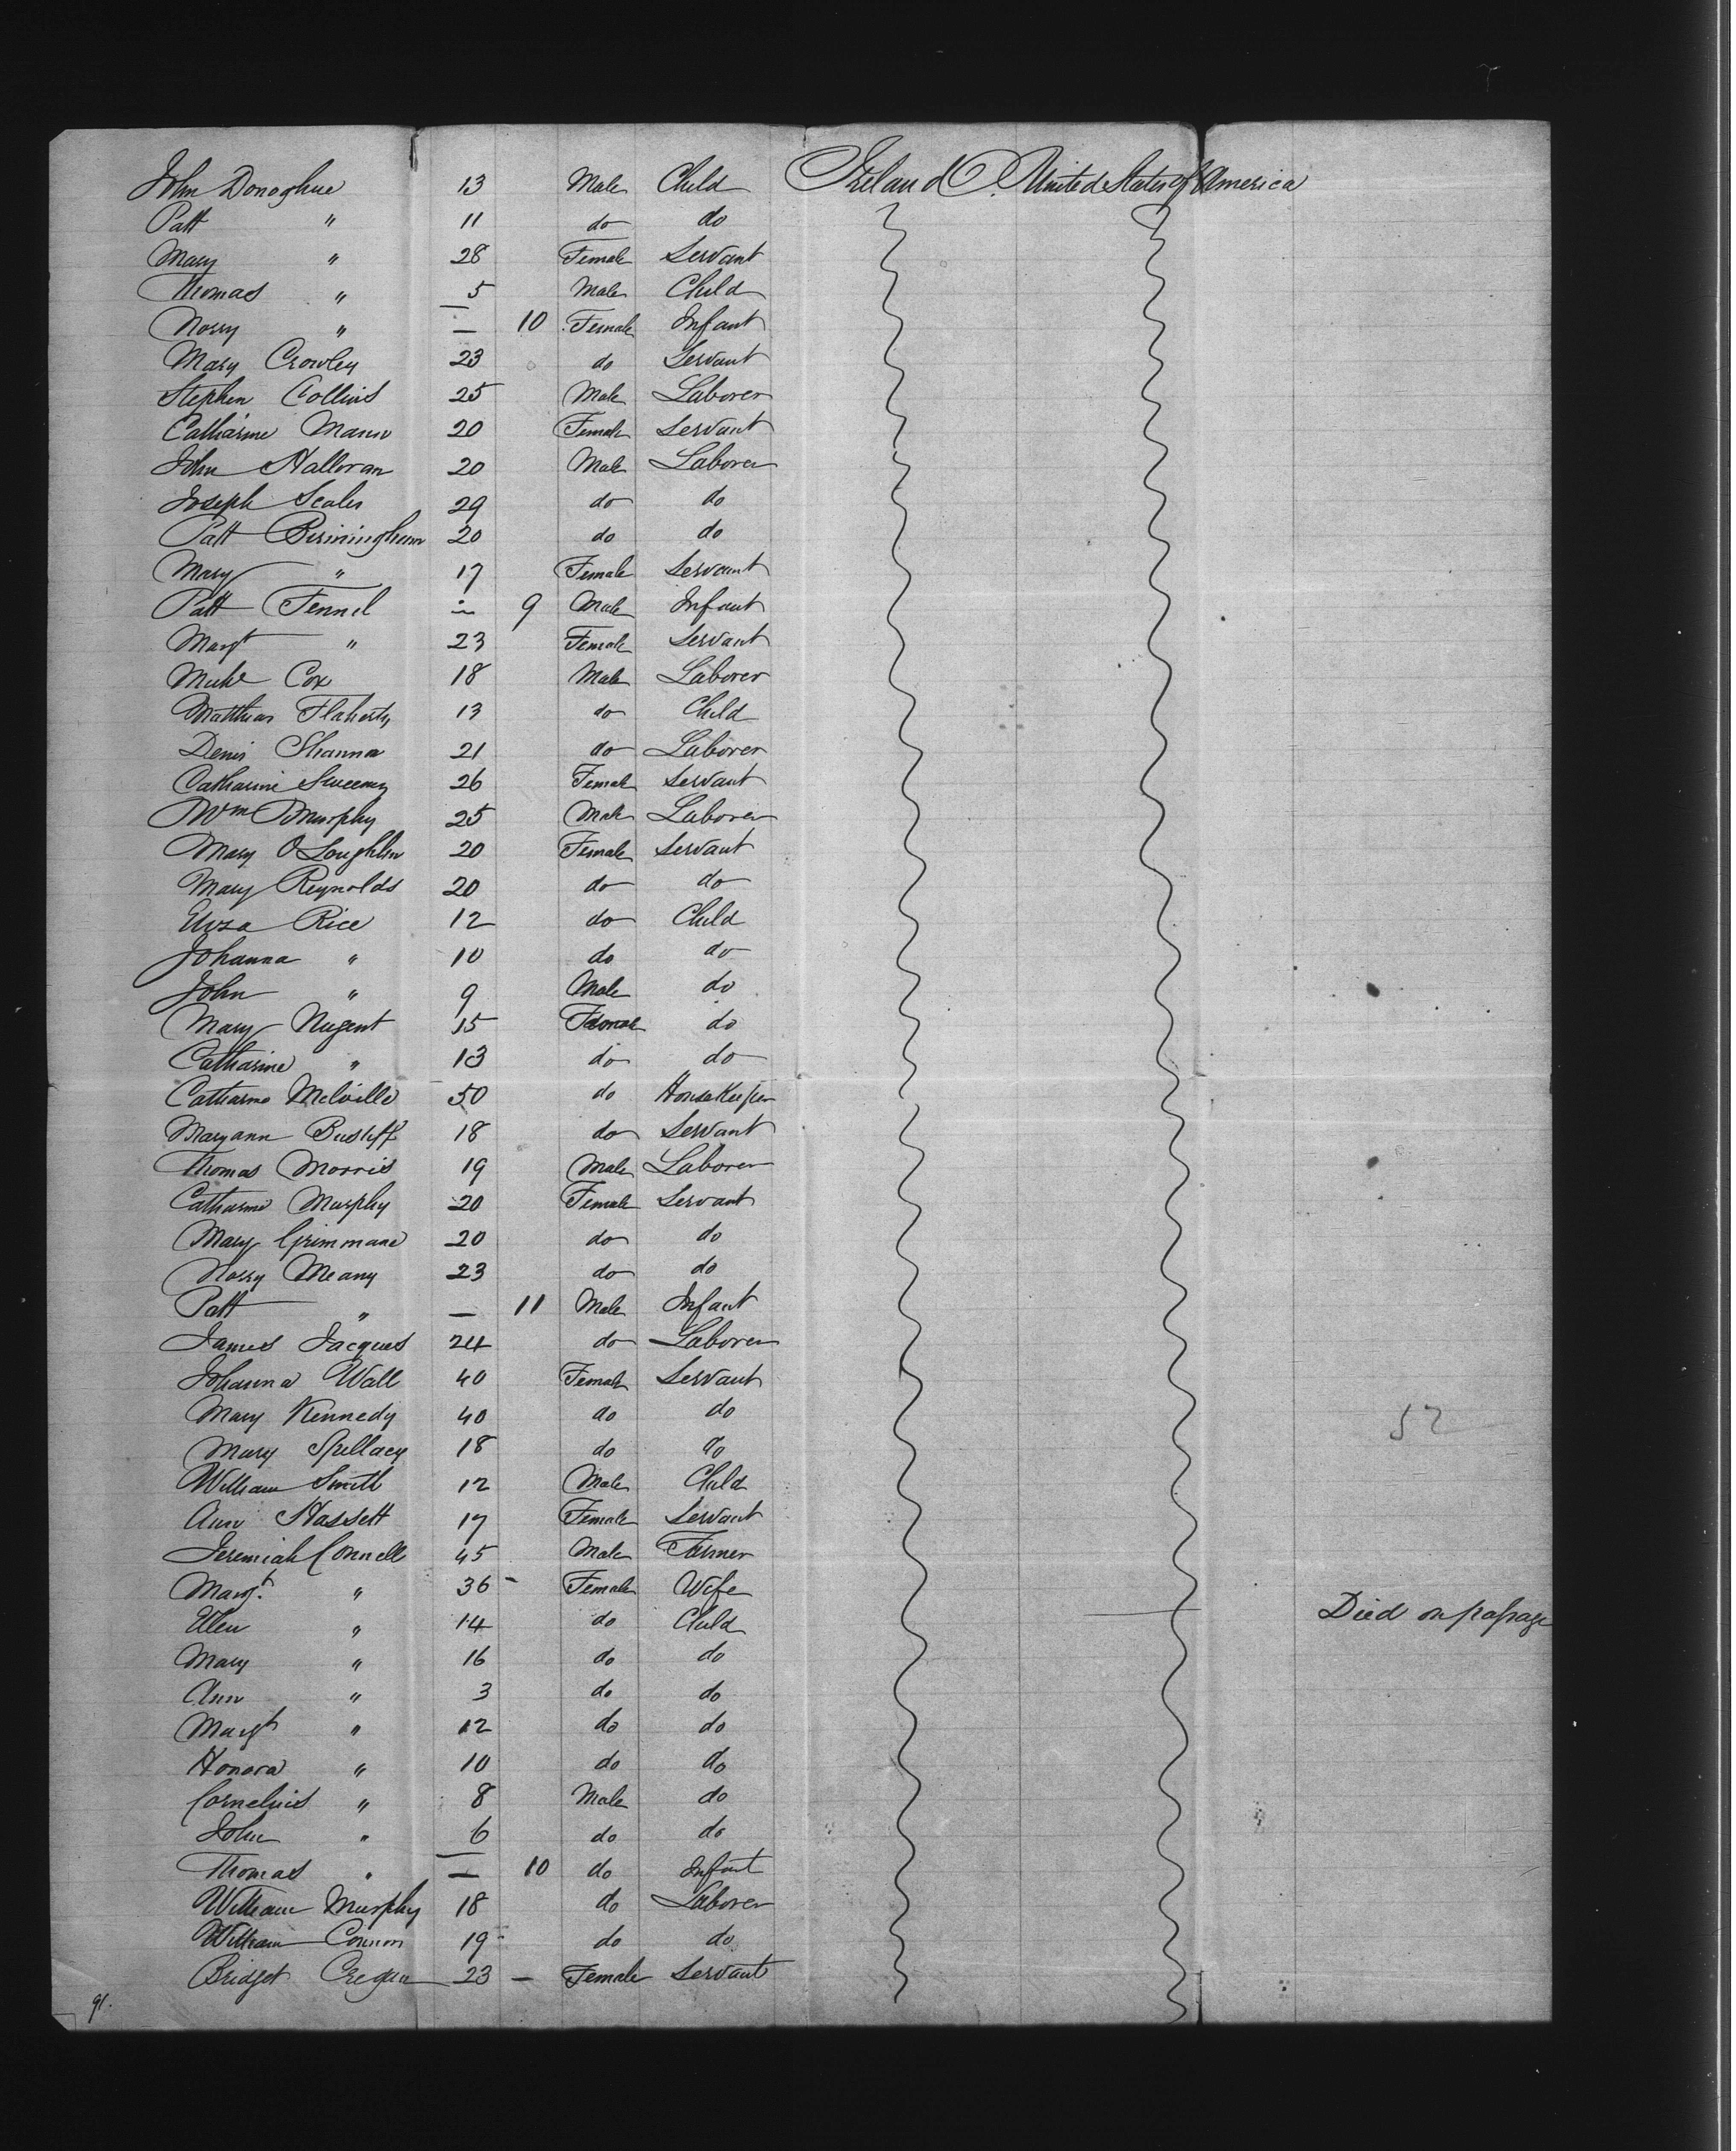 John Donoghue 13 Male Child Ireland United States of America
Patt " 11 do do
Mary " 28 Female Servant
Thomas " 5 Male Child
Norry " — 10 Female Infant
Mary Crowley 23 do Servant
Stephen Collins 25 Male Laborer
Catharine Mann 20 Female Servant
John Halloran 20 Male Laborer
Joseph Scales 29 do do
Patt Birmingham 20 do do
Mary " 17 Female Servant
Patt Fennel — 9 Male Infant
Margt " 23 Female Servant
Michl Cox 18 Male Laborer
Matthias Flaherty 13 do Child
Denis Shanna 21 do Laborer
Catharine Sweeney 26 Female Servant
Wm Murphy 25 Male Laborer
Mary O Loughlin 20 Female Servant
Mary Reynolds 20 do do
Eliza Rice 12 do Child
Johanna " 10 do do
John " 9 Male do
Mary Nugent 15 Female do
Catharine " 13 do do
Catharine Melville 50 do HouseKeeper
Maryann 18 do Servant
Thomas Morris 19 Male Laborer
Catharine Murphy 20 Female Servant
Mary Grimmane 20 do do
Norry Meany 23 do do
Patt " — 11 Male Infant
James Jacques 24 do Laborer
Johanna Wall 40 Female Servant
Mary Kennedy 40 do do 52
Mary Spellacy 18 do do
William Smith 12 Male Child
Ann Hassett 17 Female Servant
Jeremiah Connell 45 Male Farmer
Margt. " 36 - Female Wife
Ellen " 14 do Child Died on passage
Mary " 16 do do
Ann " 3 do do
Margt " 12 do do
Honora " 10 do do
Cornelius " 8 Male do
John " 6 do do
Thomas " — 10 do Infant
William Murphy 18 do Laborer
William Connor 19 do do
Bridget Cregan 23 — Female Servant
91.